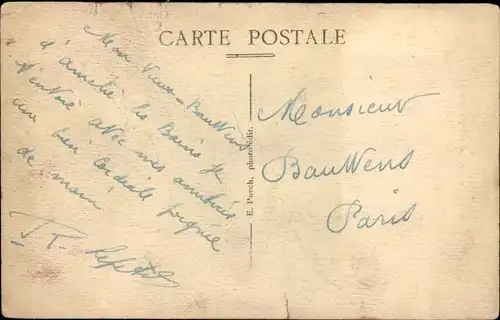 CARTE POSTALE
Mon Vieux Bauwens
d'amélie les Bains je
t'envoie avec mes amitiés
une bien Cordiale poignée
de main
R.
E. Puech, photo-édit.
Monsieur
Bauwens
Paris